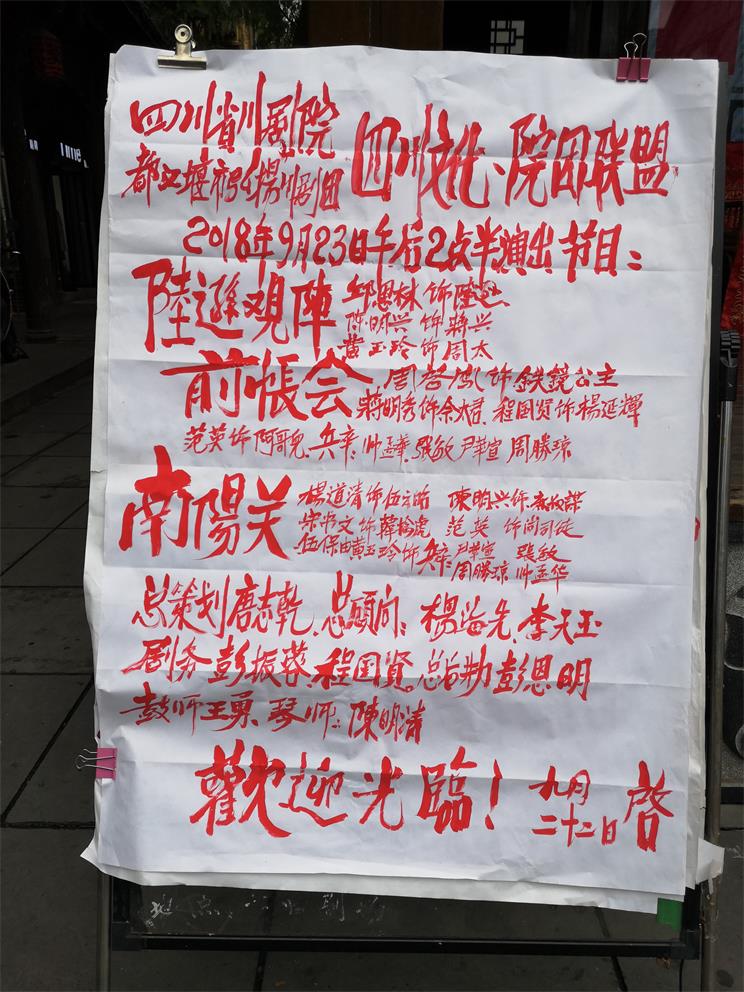 四川省川剧院
都江堰市 杨川剧团
四川文化、院团联盟
2018年9月23日午后2点半演出节目：
陸遜观陣
邱恩林饰陸遜
陈明兴饰蒋兴
黄玉玲饰周太
前帳会 周 饰鉄鏡公主
蒋明秀饰佘太君、程国贤饰楊延輝
范英饰阿哥 兵卒：帅孟華、張敏、尹華宣、周勝琼
南陽关
楊道清饰伍云 陳明兴饰
宋书文饰韓擒虎 范英饰尚司徒
伍保由黄玉玲饰 兵卒：尹華宣 張敏
周勝琼 帅孟华
总策划唐志乾、总顾问：楊海先、李天玉
剧务彭振蓉、程国贤、总 彭恩明
鼓师王勇、琴师：陳明清
歡迎光臨！
九月
二十二日 啓